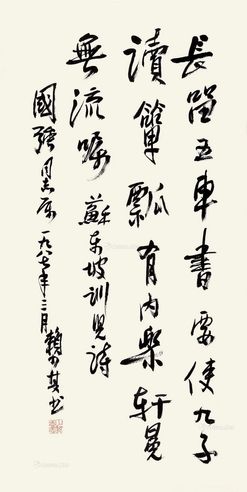 長留五車書要使九子
讀簞瓢有内樂軒冕
無流矚 蘇東坡訓兒詩
國強同志属一九八七年三月賴少其书